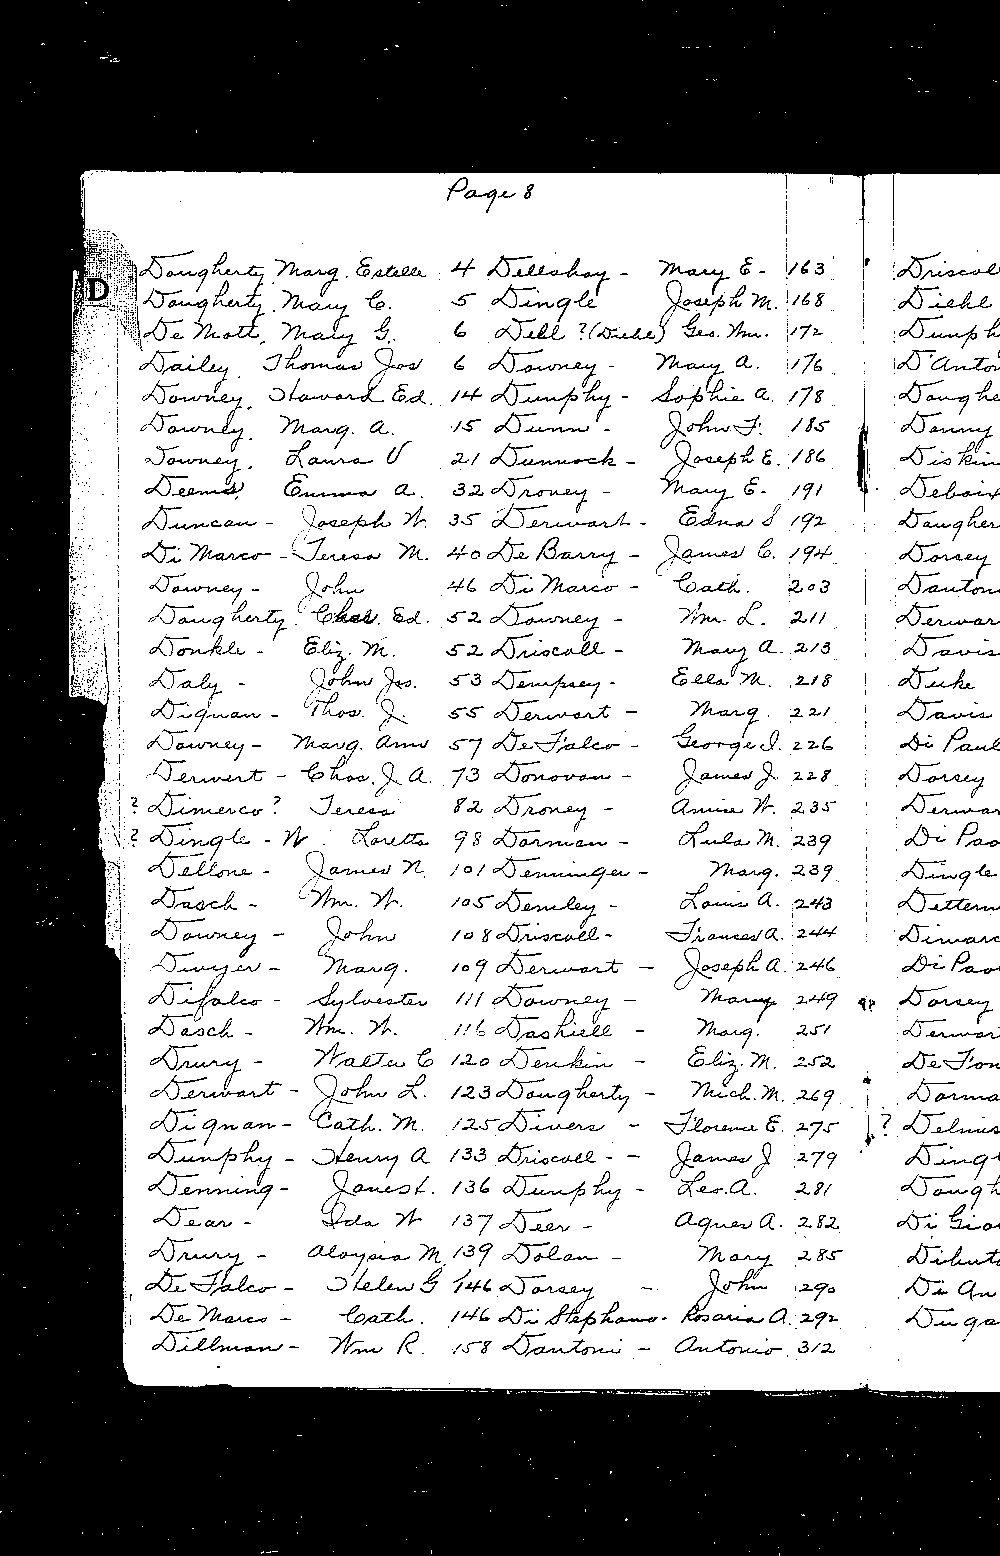 Page 8
D
Dougherty, Marg. Estelle 4 Dellshay - Mary E- 163 Driscol
Dougherty, Mary C. 5 Dingle Joseph M. 168 Diehl
De Mott, Mary G. 6 Dell ? (Diehl) Geo. Wm. 172 Dunph
Dailey, Thomas Jos 6 Downey - Mary A. 176 D'Anton
Downey, Howard Ed. 14 Dunphy - Sophie A. 178 Doughe
Downey, Marg. A. 15 Dunn - John F. 185 Danny
Downey, Laura V 21 Dunnock - Joseph E. 186 Diskin
Deems, Emma A. 32 Droney - Mary E- 191 Deboix
Duncan - Joseph W. 35 Derwart - Edna S 192 Daugher
Di Marco - Teresa M. 40 De Barry - James C. 194 Dorsey
Downey - John 46 Di Marco - Cath. 203 Danton
Dougherty, Chas. Ed. 52 Downey - Wm. L. 211 Derwar
Donkle - Eliz. M. 52 Driscoll - Mary A. 213 Davis
Daly - John Jos. 53 Dempsey - Ella M. 218 Duke
Dignan - Thos. J. 55 Derwart - Marg. 221 Davis
Downey - Marg. Ann 57 De Falco - George J. 226 Di Paul
Derwert - Chas. J. A. 73 Donovan - James J. 228 Dorsey
? Dimerco? Teresa 82 Droney - Annie W. 235 Derwar
? Dingle - W. Loretta 98 Dorman - Lula M. 239 Di Pao
Dellone - James N. 101 Denninger - Marg. 239 Dingle
Dasch - Wm. W. 105 Demley - Louis A. 243 Dettern
Downey - John 108 Driscoll - Frances A. 244 Dimarc
Dwyer - Marg. 109 Derwart - Joseph A. 246 Di Pao
Difalco - Sylvester 111 Downey - Mary 249 Dorsey
Dasch - Wm. W. 116 Dashiell - Marg. 251 Derwar
Drury - Walter C 120 Denkin - Eliz. M. 252 De Fon
Derwart - John L. 123 Dougherty - Mich. M. 269 Dorma
Dignan - Cath. M. 125 Divers - Florence E. 275 ? Delmis
Dunphy - Henry A 133 Driscoll - - James J 279 Dingl
Denning - James L. 136 Dunphy - Leo. A. 281 Dough
Dear - Ida W 137 Deer - Agnes A. 282 Di Gia
Drury - Aloysia M. 139 Dolan - Mary 285 Dibuto
De Falco - Helen G 146 Dorsey - John 290 Di An
De Marco - Cath. 146 Di Stephano - Rosaria A. 292 Duga
Dillman - Wm R. 158 Dantoni - Antonio 312